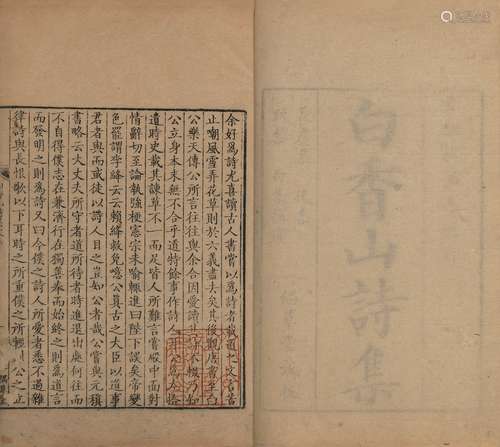 余好爲詩尤喜讀古人書嘗以爲詩者載道之文言苟
止嘲風雪弄花草則於六義盡去矣其後觀唐書至白
公樂天傳公所言往往與余合因愛讀其詩不輟乃知
公立身本末無不合乎道特餘事作詩人
遺時史載其諫草不一而足皆人所難言嘗殿中面對
情辭切至論執強梗憲宗未喻輒進曰陛下誤矣帝變
色罷謂李絳云云賴絳救免噫公真古之大臣以道事
君者與而或徒以詩人目之豈知公者哉公嘗與元稹
書略云大丈夫所守者道所待者時進退出處何往而
不自得僕志在兼濟行在獨善奉而始終之則爲道言
而發明之則爲詩又曰今僕之詩人所愛者悉不過雜
律詩與長恨歌以下耳時之所重僕之所
公之正
白香山詩集